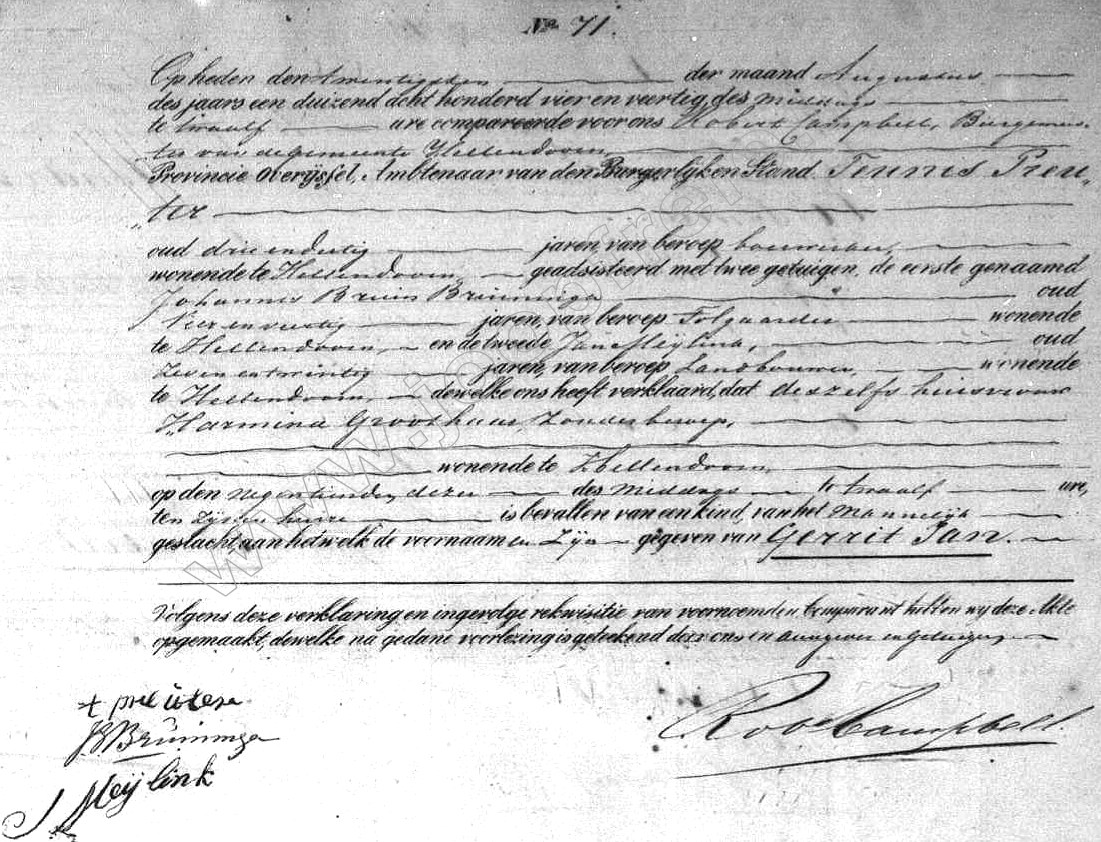 No 71.
Op heden den twentigsten der maand Augustus
des jaars een duizend acht honderd vier en veertig, des middags
te twaalf ure compareerde voor ons Robert Campbell, Burgemees-
ter van de gemeente Hellendoorn,
Provincie Overijssel, Ambtenaar van den Burgerlyken Stand. Teunis Preu„
„ter
oud drie en dertig jaren, van beroep bouwman,
wonende te Hellendoorn, geadsisteerd met twee getuigen, de eerste genaamd
Johannis Bruins Bruininga oud
Vier en veertig jaren, van beroep Tolgaarder wonende
te Hellendoorn, en de tweede Jan Meylink, oud
zeven en twintig jaren, van beroep Landbouwer, wonende
te Hellendoorn, dewelke ons heeft verklaard, dat deszelfs huisvrouw
Harmina Groothuis, Zonder beroep,
wonende te Hellendoorn,
op den negentienden dezer des middags te twaalf ure,
ten zynen huize is bevallen van een kind, van het mannelijk
geslacht, aan hetwelk de voornaam en zijn gegeven van Gerrit Jan.
Volgens deze verklaring en ingevolge rekwisitie van voornoemden Comparant hebben wy deze Akte
opgemaakt, dewelke na gedane voorlezing is geteekend door ons en aangever en getuigen
JB Bruininga
J Meijlink
Robt Campbell.
www.